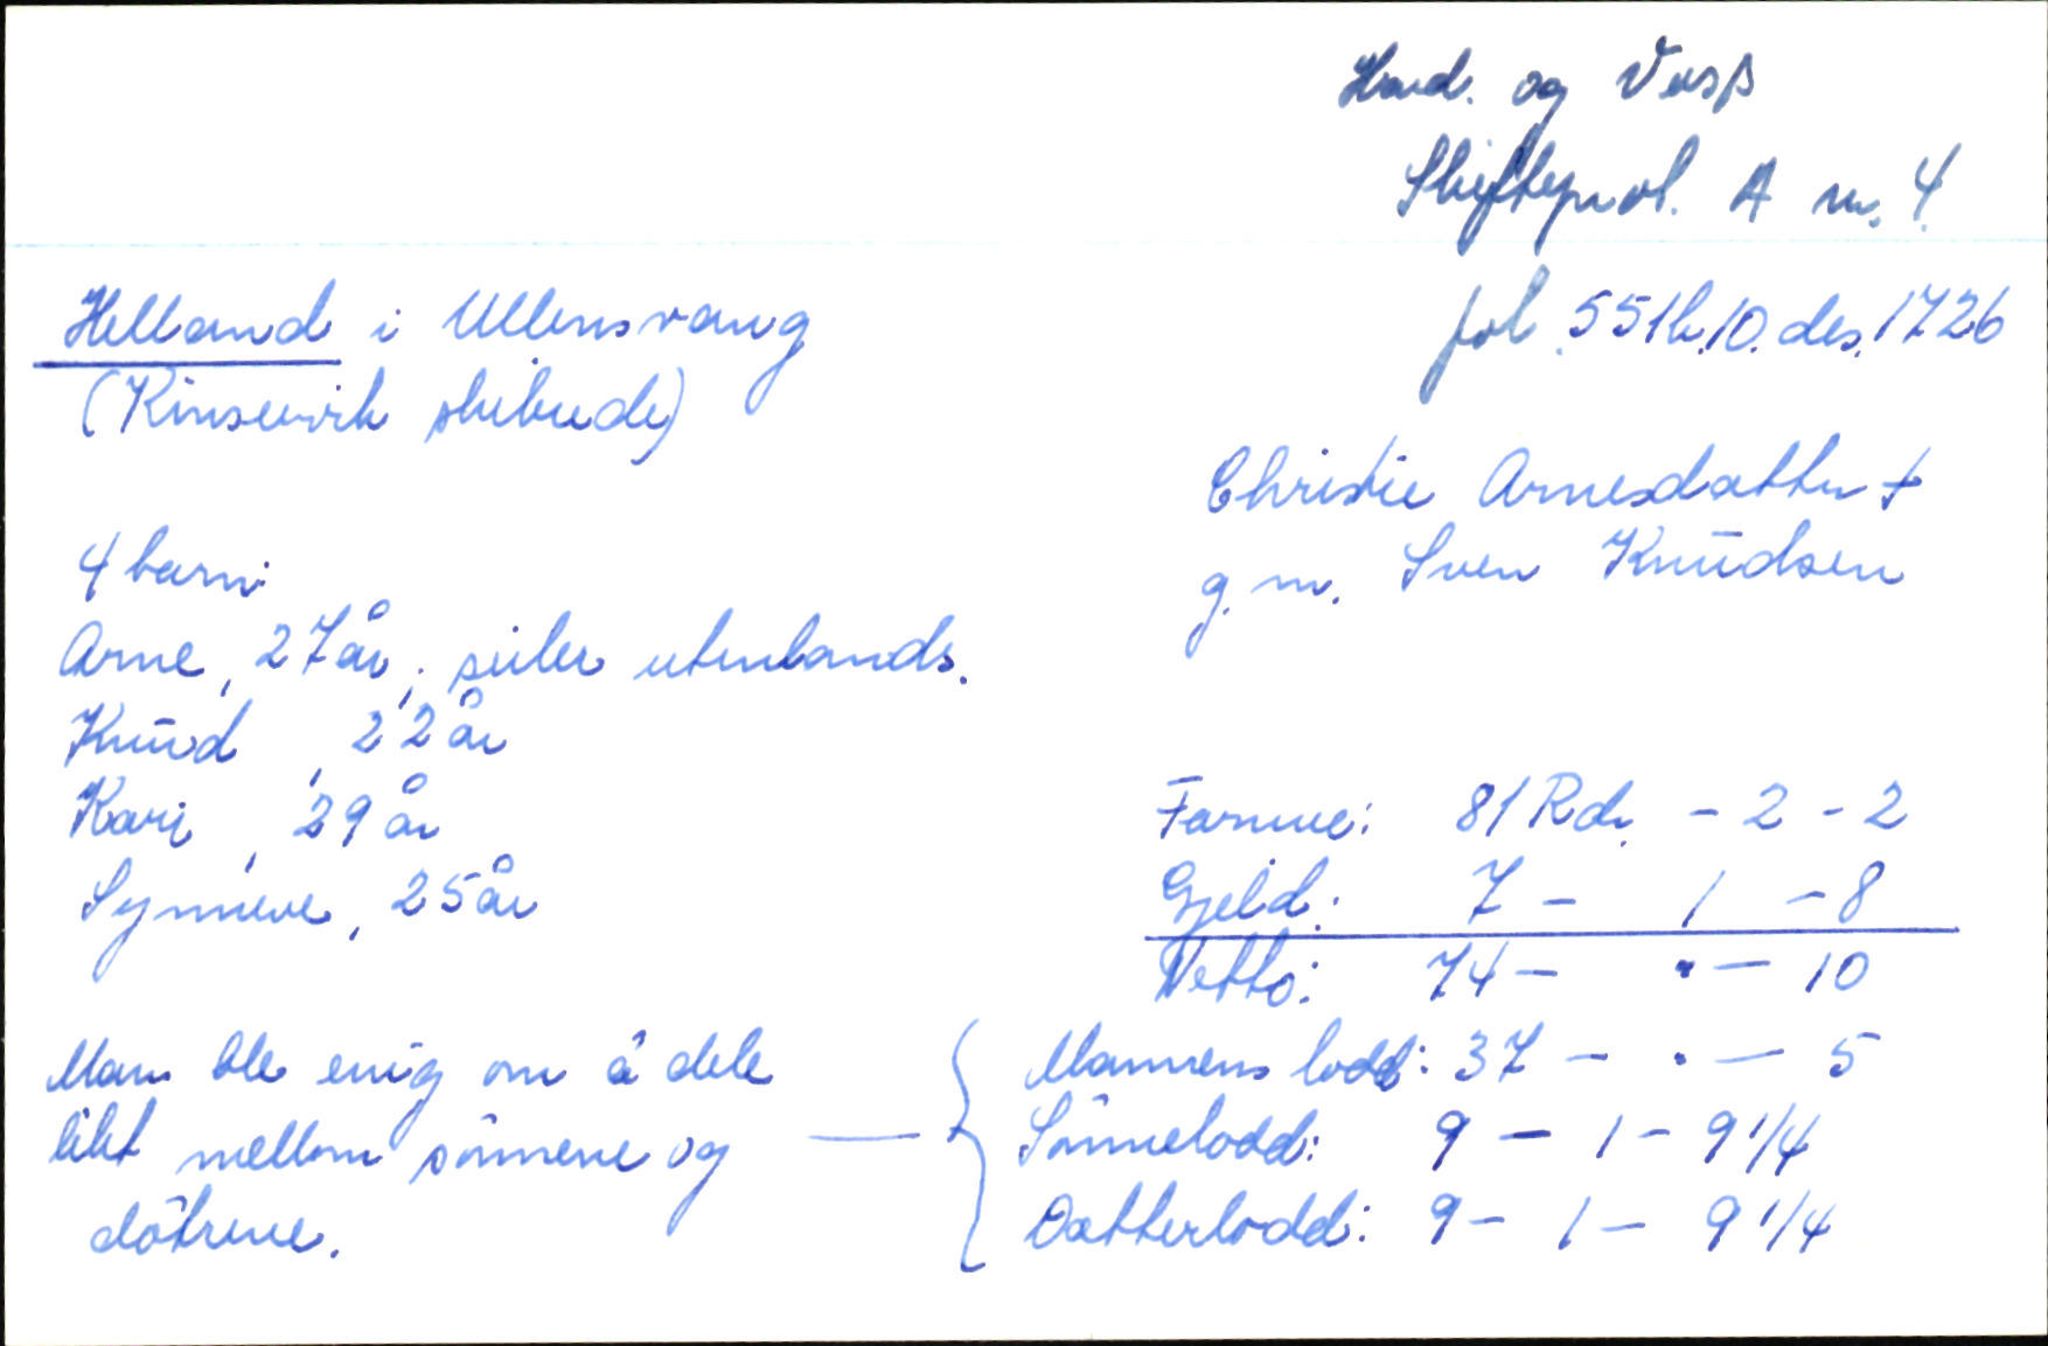 Hard. og Voss
Skifteprot. A nr. 4.
fol. 551b, 10. des. 1726
Helland i Ullensvang
(Kinservik skibrede)
Christie Arnesdatter †
g. m. Sven Knūdsen
4 barn:
Arne, 27 år, seiler utenlands.
Knūd, 22 år
Kari, 29 år
Synneve, 25 år
Formue: 81 Rd. - 2 - 2
Gjeld: 7 - 1 - 8
Netto: 74 - • - 10
Man ble enig om å dele
likt mellom sönnene og
dötrene.
Mannens lodd: 37 - • - 5
Sönnelodd: 9 - 1 - 9 1/4
Datterlodd: 9 - 1 - 9 1/4